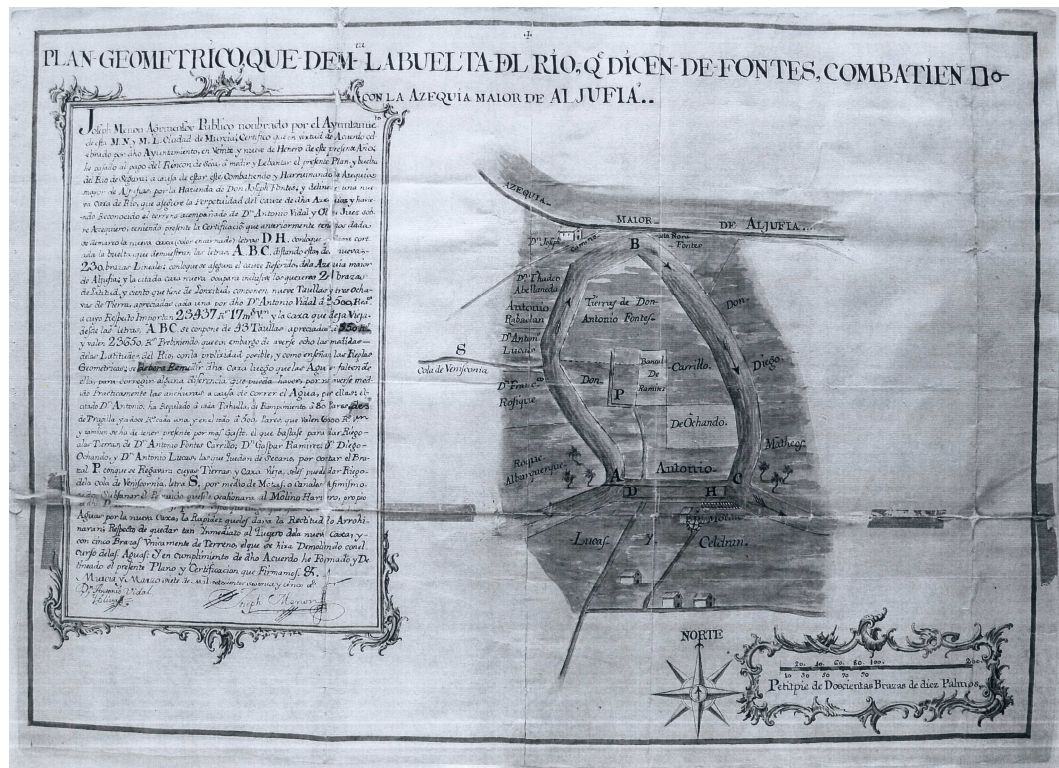 PLAN GEOMETRICO, QUE DEM LA BUELTA DL RÍO, Q DÍCEN DE FONTES, COMBATÍEN Do
CON LA AZEQUIA MAIOR DE ALJUFIA..
Joseph Menon Agrimensor Publico nonbrado por el Ayuntamie
de esta M. N. y M. L. Ciudad de Murcia; Certifico que en virtud de Acuerdo cel
ebrado por dho Ayuntamiento, en Veinte y nueve de Henero de este presente Año;
he pasado al pago del Rincon de Seca, à medir y Lebantar el presente Plan y buelta
del Rio de Segura, à causa de estar este, Combatiendo y Harruinando la Azequia
mayor de Aljufia, por la Hazienda de Don Joseph Fontes; y delinear una nue
va Caxa de Rio, que asegure la Perpetuidad del cauze de dha Azequia; y havie
ndo Reconocido el terreno acompañado de Dn. Antonio Vidal y
re Azequero, teniendo presente la Certificación que anteriormente dada
se demarco la nueva caxa, color encarnado, letras D H. conloque cort
ada la buelta, que demuestran las letras A B C, distando esta, de nueva
230, brazas Lineales; conloque se asegura el cauze Referido, dela Azequia maior
de Aljufia; y la citada caxa nueva ocupara inclusos los quixeros 21 brazas
de Latitud, y ciento que tiene de Longitud, conponen nueve Taullas y tres Ocha
vas de Tierra, apreciadas cada una por dho Dn. Antonio Vidal à 2500 Rs.
a cuyo Respeto Importan 23437 Rs. 17 ms. Vn. y la caxa que deja Vieja
desde las letras, A B C se conpone de 43 Taullas apreciadas à 550
y valen 23650 Rs. Previniendo que en embargo de averse echo las medidas
delas Latitudes del Rio, con la prolixidad posible, y como enseñan las Reglas
Geometricas; se debera Remedir dha Caxa luego que las Aguas falten de
ella, para corregir alguna diferencia que pueda haver, por no averse med
ido Practicamente las anchuras a causa de correr el Agua, por ellas; el
citado Dn. Antonio, ha Regulado à cada Tahulla, de Ronpimiento à 80 Pares
de Trapilla y à doce Rs. cada uno
y tambien se ha de tener presente por mas Gasto, el que bastase para dar Riego
alas Tierras, de Dn. Antonio Fontes Carrillo; Dn. Gaspar Ramirez; Dn. Diego
Ochando, y Dn. Antonio Lucas, las que quedan de Secano, por cortar el Bra
zal P. conque se Regavan; cuyas Tierras y Caxa Vieja, seles puede dar Riego
dela cola de Veniscornia, letra S, por medio de Motas, o Canales: Asimismo
se deve Subsanar el Perjuicio quesele ocasionara al Molino Harinero, propio
Aguas por la nueva Caxa, la Rapidez queles dara la Rectitud lo Arrohi
naran; Respecto de quedar tan Inmediato al Quijero dela nueva Caxa; y
con cinco Brazas Vnicamente de Terreno, elque se hira Demoliendo con el
curso delas Aguas: Y en cumplimiento de dho Acuerdo he Formado y De
lineado el presente Plano y Certificacion que Firmamos. &.
Murcia y Marzo siete de mil setecientos sesenta y cinco as.
Dn. Antonio Vidal
Joseph Menon
AZEQUIA
MAIOR
DE ALJUFIA..
Dn. Joseph
Camino
B
Fontes
Dn. Thadeo
Abellaneda
Antonio
Rabadan
Dn. Anton
Lucas
Dn. Franco.
Rosique
Tierras de Don
Antonio Fontes
Don
Diego
Matheos
S
Cola de Veniscornia
Don
P
Banal
De
Ramirez
Carrillo
De Ochando
Roque
Alburquerque
A
D
Antonio
H
C
Molino
Lucas
Y
Celdran
NORTE
20. 40. 60. 80. 100. 200
10 30 50 70 90
Petitpie de Doscientas Brazas de diez Palmos